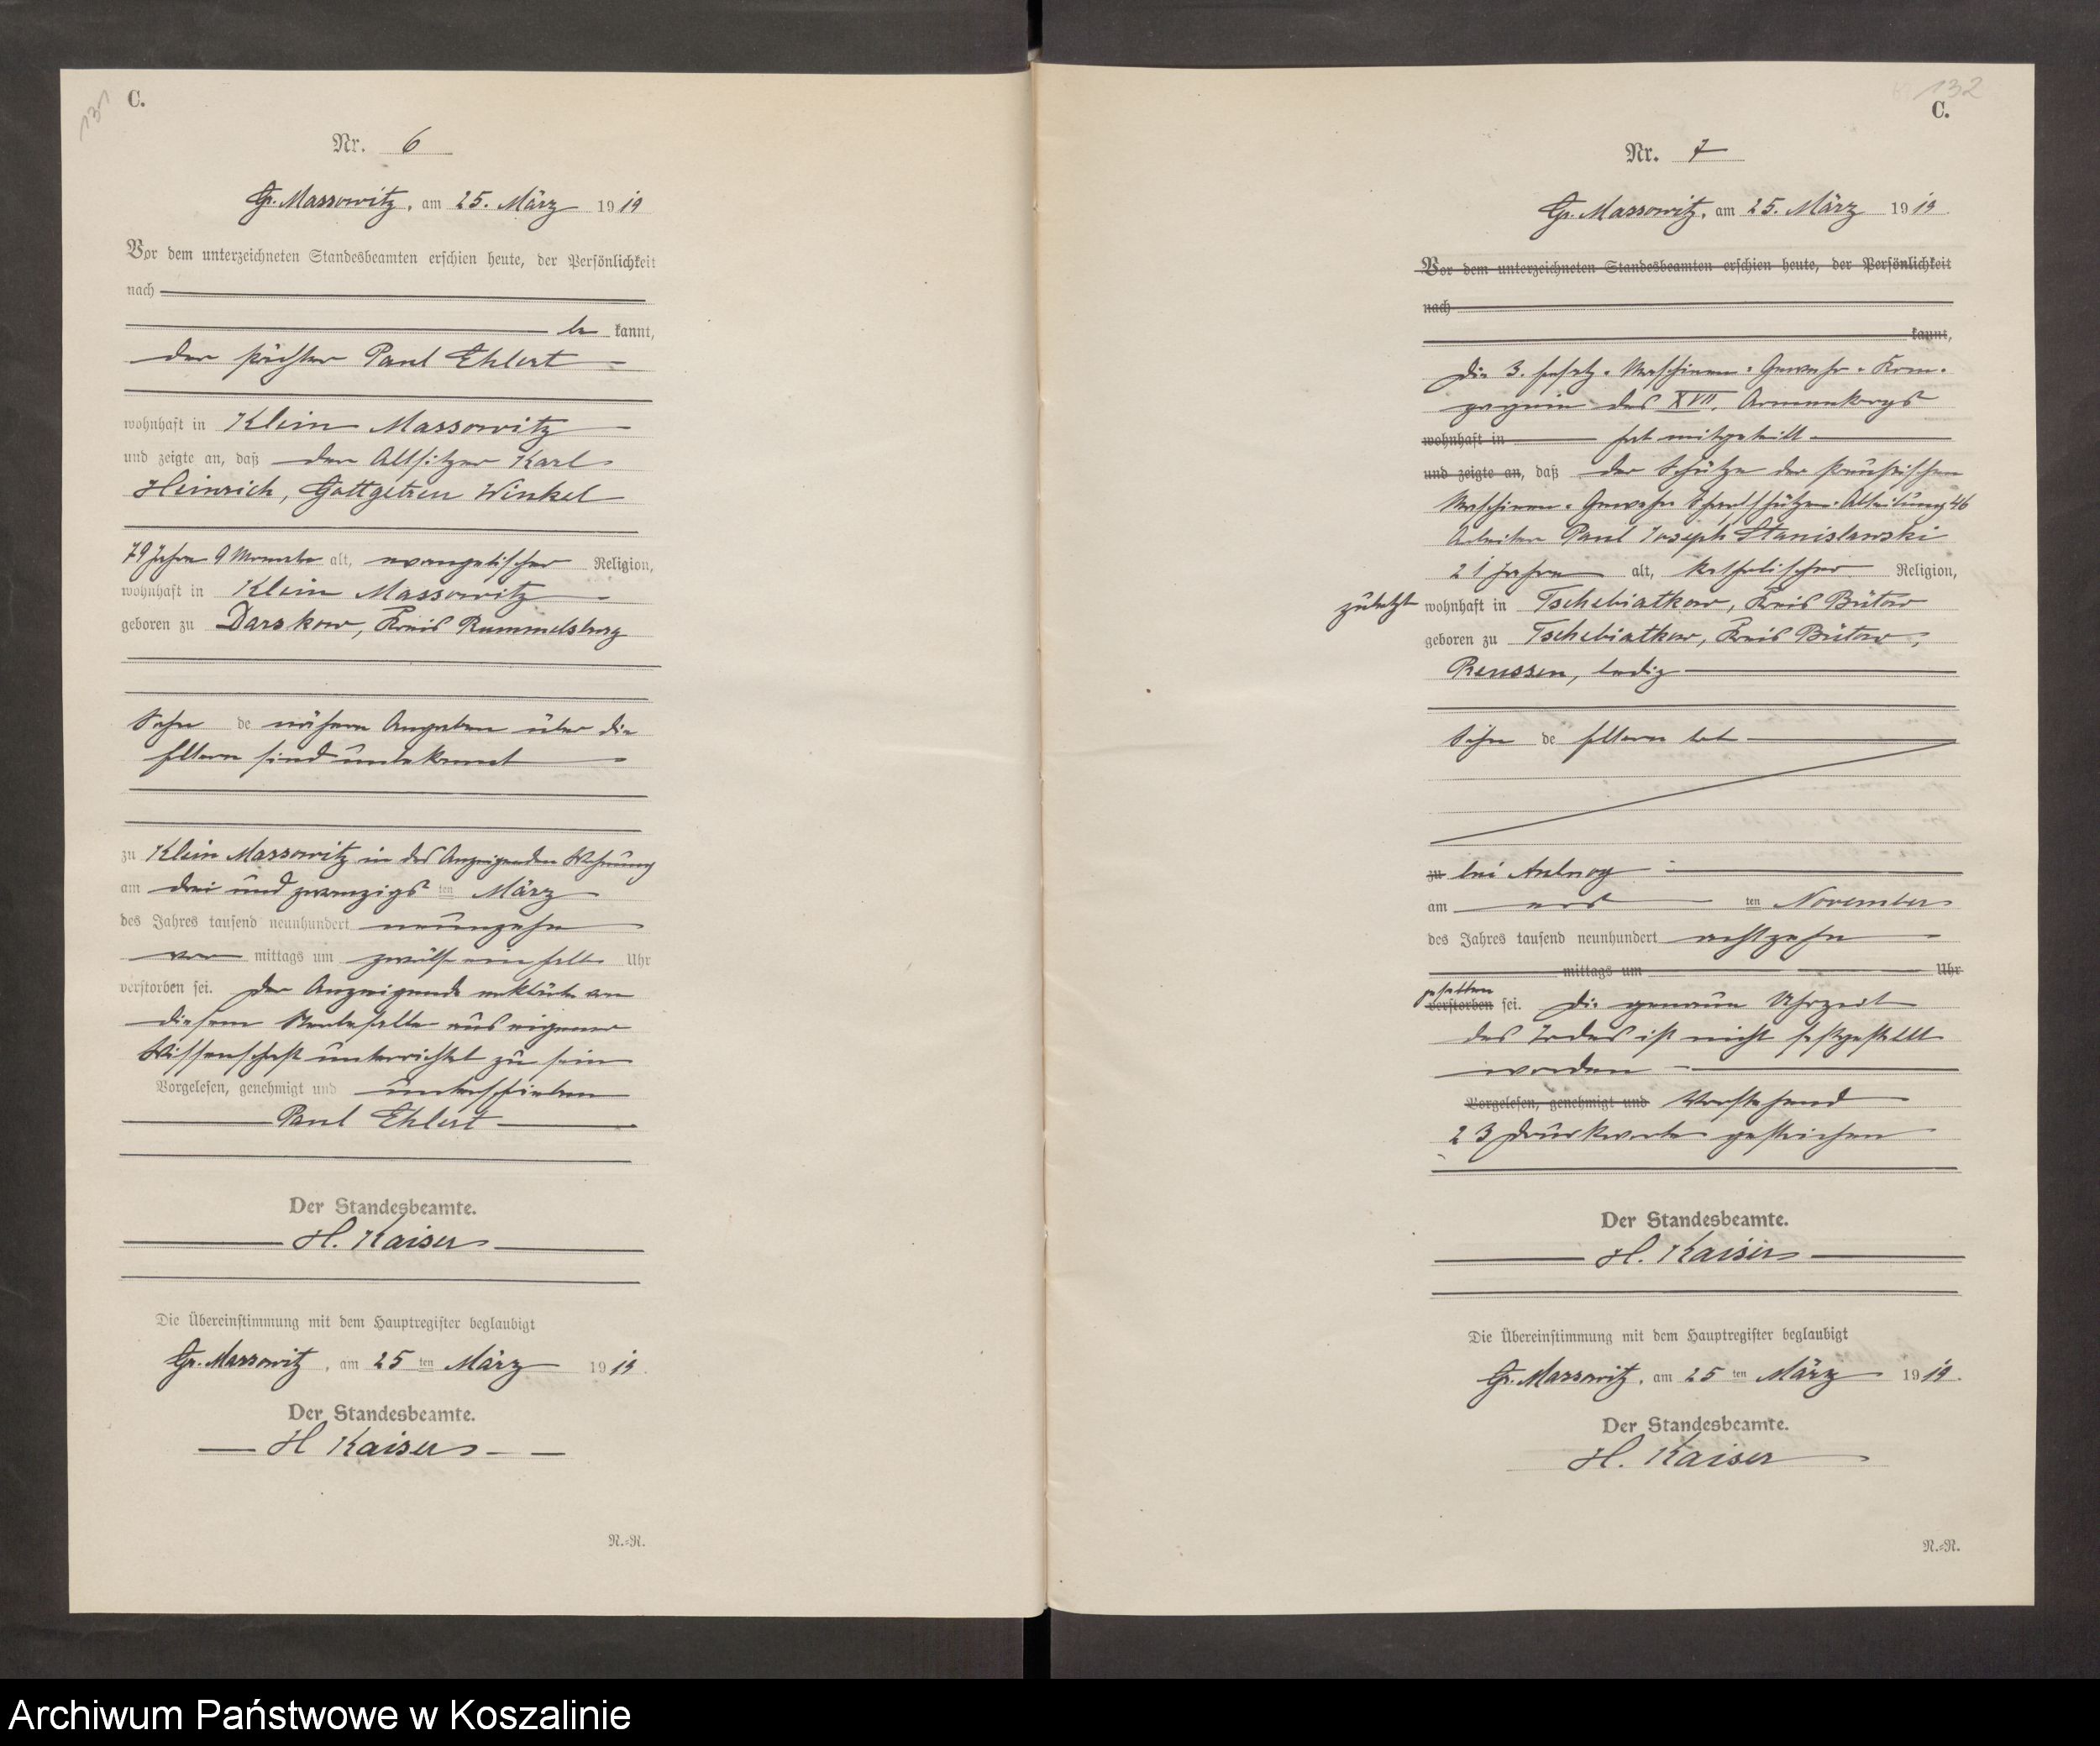 131
C.
Nr. 6
Gr. Massowitz, am 25. März 1919
Vor dem unterzeichneten Standesbeamten erschien heute, der Persönlichkeit
nach
be kannt,
der Pächter Paul Ehlert
wohnhaft in Klein Massowitz
und zeigte an, daß der Altsitzer Karl
Heinrich, Gottgetreu Winkel
79 Jahre 9 Monate alt, evangelischer Religion,
wohnhaft in Klein Massowitz
geboren zu Darskow, Kreis Rummelsburg
Sohn de nähere Angaben über die
Eltern sind unbekannt
zu Klein Massowitz in des Anzeigenden Wohnung
am drei und zwanzigs ten März
des Jahres tausend neunhundert neunzehn
vor mittags um zwölf ein halb Uhr
verstorben sei. Der Anzeigende erklärte von
diesem Sterbefalle aus eigener
Wissenschaft unterrichtet zu sein
Vorgelesen, genehmigt und unterschrieben
Paul Ehlert
Der Standesbeamte.
H. Kaiser
Die Übereinstimmung mit dem Hauptregister beglaubigt
Gr. Massowitz, am 25 ten März 1919.
Der Standesbeamte.
H Kaiser
N.=R.
132
C.
Nr. 7
Gr. Massowitz, am 25. März 1919.
Vor dem unterzeichneten Standesbeamten erschien heute, der Persönlichkeit
nach
kannt,
Die 3. Ersatz-Maschinen-Gewehr-Kom-
pagnie des XVII. Armeekorps
wohnhaft in hat mitgeteilt
und zeigte an, daß der Schütze der Preußischen
Maschinen-Gewehr Scharfschützen-Abteilung 46
Arbeiter Paul Joseph Stanislawski
21 Jahre alt, katholischer Religion,
zuletzt wohnhaft in Tschebiatkow, Kreis Bütow
geboren zu Tschebiatkow, Kreis Bütow,
Preussen, ledig
Sohn de Eltern tot
zu bei Aulnoy
am ers ten November
des Jahres tausend neunhundert achtzehn
mittags um Uhr
gefallen
verstorben sei. Die genaue Uhrzeit
des Todes ist nicht festgestellt
worden
Vorgelesen, genehmigt und Vorstehend
23 Druckworte gestrichen
Der Standesbeamte.
H. Kaiser
Die Übereinstimmung mit dem Hauptregister beglaubigt
Gr. Massowitz, am 25 ten März 1919.
Der Standesbeamte.
H. Kaiser
N.=R.
Archiwum Państwowe w Koszalinie